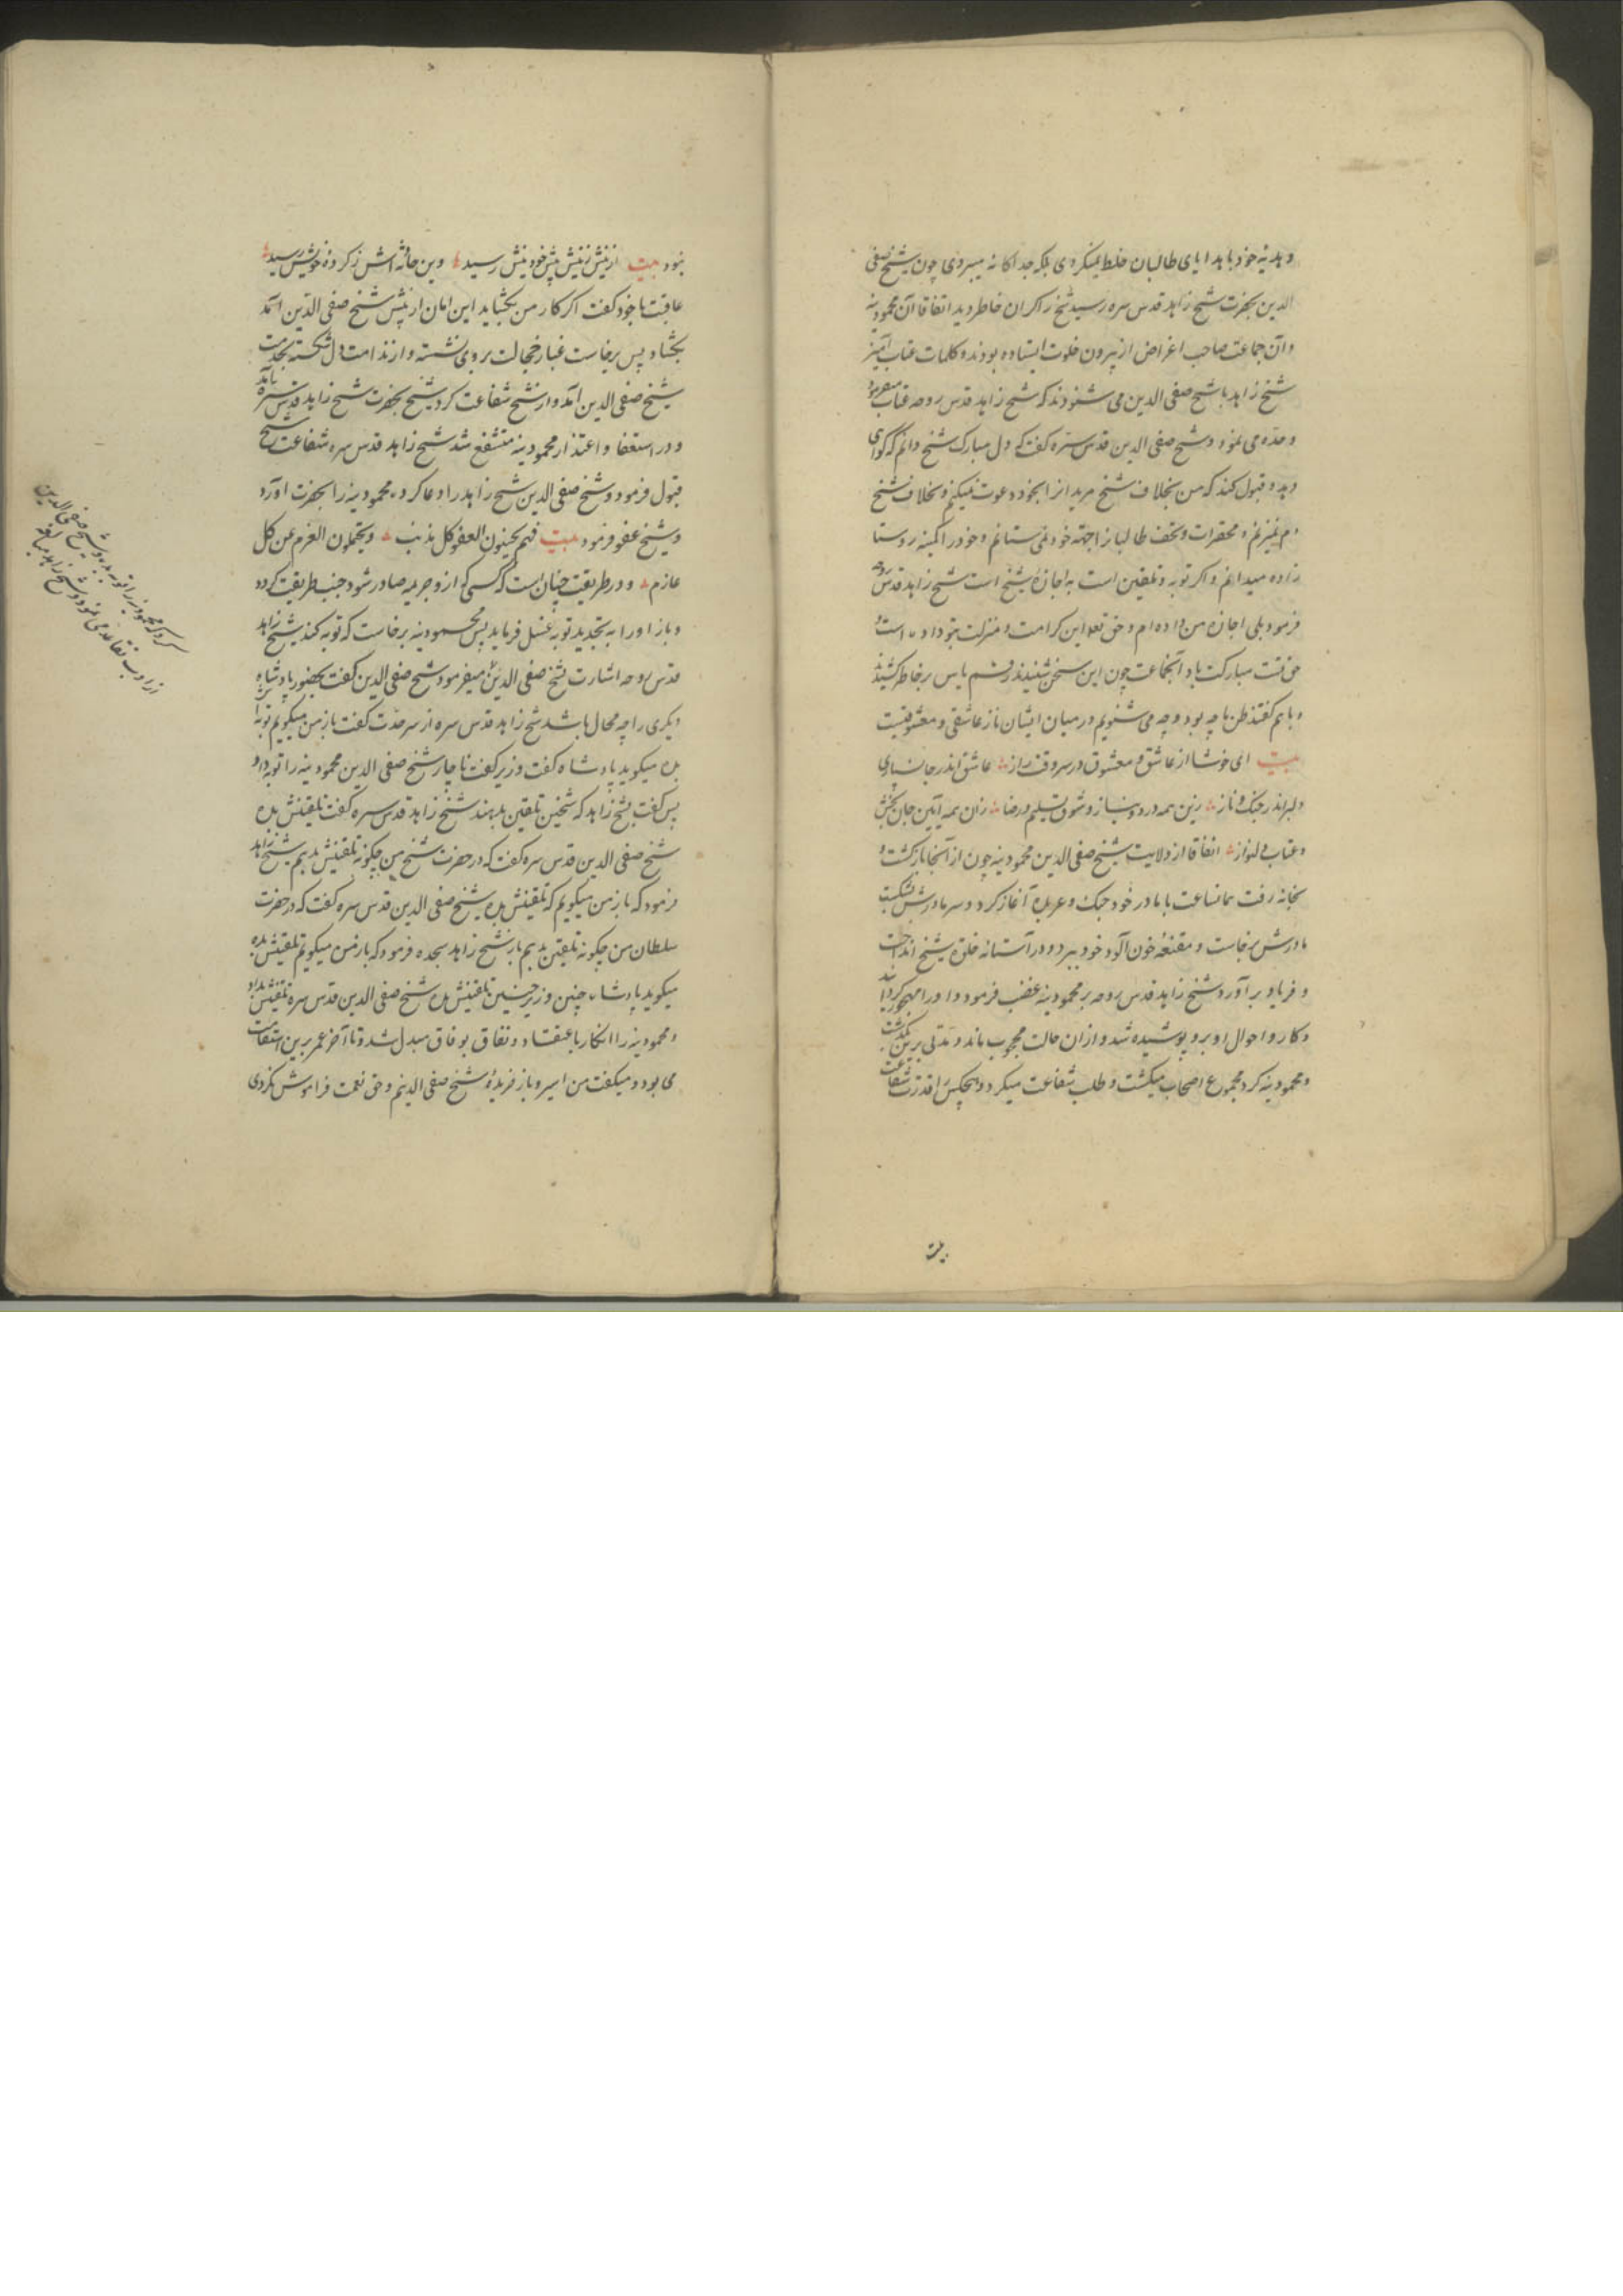 و هدیه خود با هدایای طالبان خلط نمیکردی بلکه جداگانه میبردی چون شیخ صفی
الدین بحضرت شیخ زاهد قدس سره رسید شیخ را گران خاطر دید اتفاقا آن محمودینه
و آن جماعت صاحب اغراض از بیرون خلوت ایستاده بودند و کلمات عتاب آمیز
شیخ زاهد با شیخ صفی الدین می شنودند که شیخ زاهد قدس روحه عتاب میفرمود
و حدّه می نمود و شیخ صفی الدین قدس سرّه گفت که دل مبارک شیخ دانم که گواهی
دهد و قبول کند که من بخلاف شیخ مریدانرا بخود دعوت نمیکنم و بخلاف شیخ
دم نمیزنم و محقرات و تحف طالبانرا جهته خود نمی ستانم و خود را کمینه روستا
زاده میدانم و اگر توبه و تلقین است به اجازهٔ شیخ است شیخ زاهد قدس روحه
فرمود بلی اجازه من داده ام و حق تعه این کرامت و منزلت بتو داده است و
حق تست مبارکت باد آنجماعت چون این سخن شنیدند رقم یاس بر خاطر کشیدند
و با هم گفتند ظن ما چه بود و چه می شنویم در میان ایشان ناز عاشقی و معشوقیست
بیت ای خوشا از عاشق و معشوق در سر وقت راز عاشق اندر جان سپاری
دلبر اندر جنک و ناز زین همه درد و نیاز و شوق تسلیم و رضا زان همه آیین جان بخش
و عتاب دلنواز اتفاقا از ولایت شیخ صفی الدین محمودینه چون از آنجا بازگشت و
بخانه رفت همانساعت با مادر خود جنک و عربده آغاز کرد و سر مادرش بشکست
مادرش برخاست و مقنعهٔ خون آلود خود ببرد و در آستانه خلوة شیخ انداخت
و فریاد برآورد شیخ زاهد قدس روحه بر محمودینه غضب فرمود و او را مهجور گردانید
و کار و احوال او برو پوشیده شد و از ان حالت محجوب ماند و مدتی برین بگذشت
و محمودینه گرد مجموع اصحاب میگشت و طلب شفاعت میکرد و هیچکس را قدرت شفاعت
نبود بیت از نیش زنیش پیش خود نیش رسید وین حادثه اش ز کرده خویش رسید
عاقبت با خود گفت اگر کار من بگشاید این امان از پیش شیخ صفی الدین آمد
بگشاد پس برخاست غبار خجالت بر روی نشسته و از ندامت دل شکسته بخدمت
شیخ صفی الدین آمد و از شیخ شفاعت کرد شیخ بحضرت شیخ زاهد قدس سره بآمد
و در استعفا و اعتذار محمودینه متشفع شد شیخ زاهد قدس سره شفاعت شیخ
قبول فرمود و شیخ صفی الدین شیخ زاهد را دعا کرده محمودینه را بحضرت آورد
و شیخ عفو فرمود بیت فهم یجنون العفو کل مذنب ویتحملون الغرم عن کل
غارم و در طریقت چنان است که کسی که ازو جریمه صادر شود جنب طریقت گردد
و باز او را به تجدید توبه غسل فرماید پس محمودینه برخاست که توبه کند شیخ زاهد
قدس روحه اشارت بشیخ صفی الدین میفرمود شیخ صفی الدین گفت بحضور پادشاه
دیگری را چه مجال باشد شیخ زاهد قدس سره از سر حدّت گفت باز من میگویم توبه اش
بده میگوید پادشاه گفت وزیر گفت ناچار شیخ صفی الدین محمودینه را توبه داد
پس گفت بشیخ زاهد که شیخین تلقین بدهند شیخ زاهد قدس سره گفت تلقینش بده
شیخ صفی الدین قدس سره گفت که در حضرت شیخ من چگونه تلقینش بدهم شیخ زاهد
فرمود که باز من میگویم که تلقینش بده شیخ صفی الدین قدس سره گفت که در حضرت
سلطان من چگونه تلقین بدهم باز شیخ زاهد بجده فرمود که باز من میگویم تلقینش بده
میگوید پادشاه چنین وزیر چنین تلقینش بده شیخ صفی الدین قدس سره تلقینش بداد
و محمودینه را انکار باعتقاد و نفاق بوفاق مبدل شد و تا آخر عمر برین استقامت
می بود و میگفت من اسیر و باز خریدهٔ شیخ صفی الدینم و حق نعمت فراموش نکردی
کرد که محمودینه را توبه بده و شیخ صفی الدین
از ادب تقاعد می نمود و شیخ زاهد مبالغه